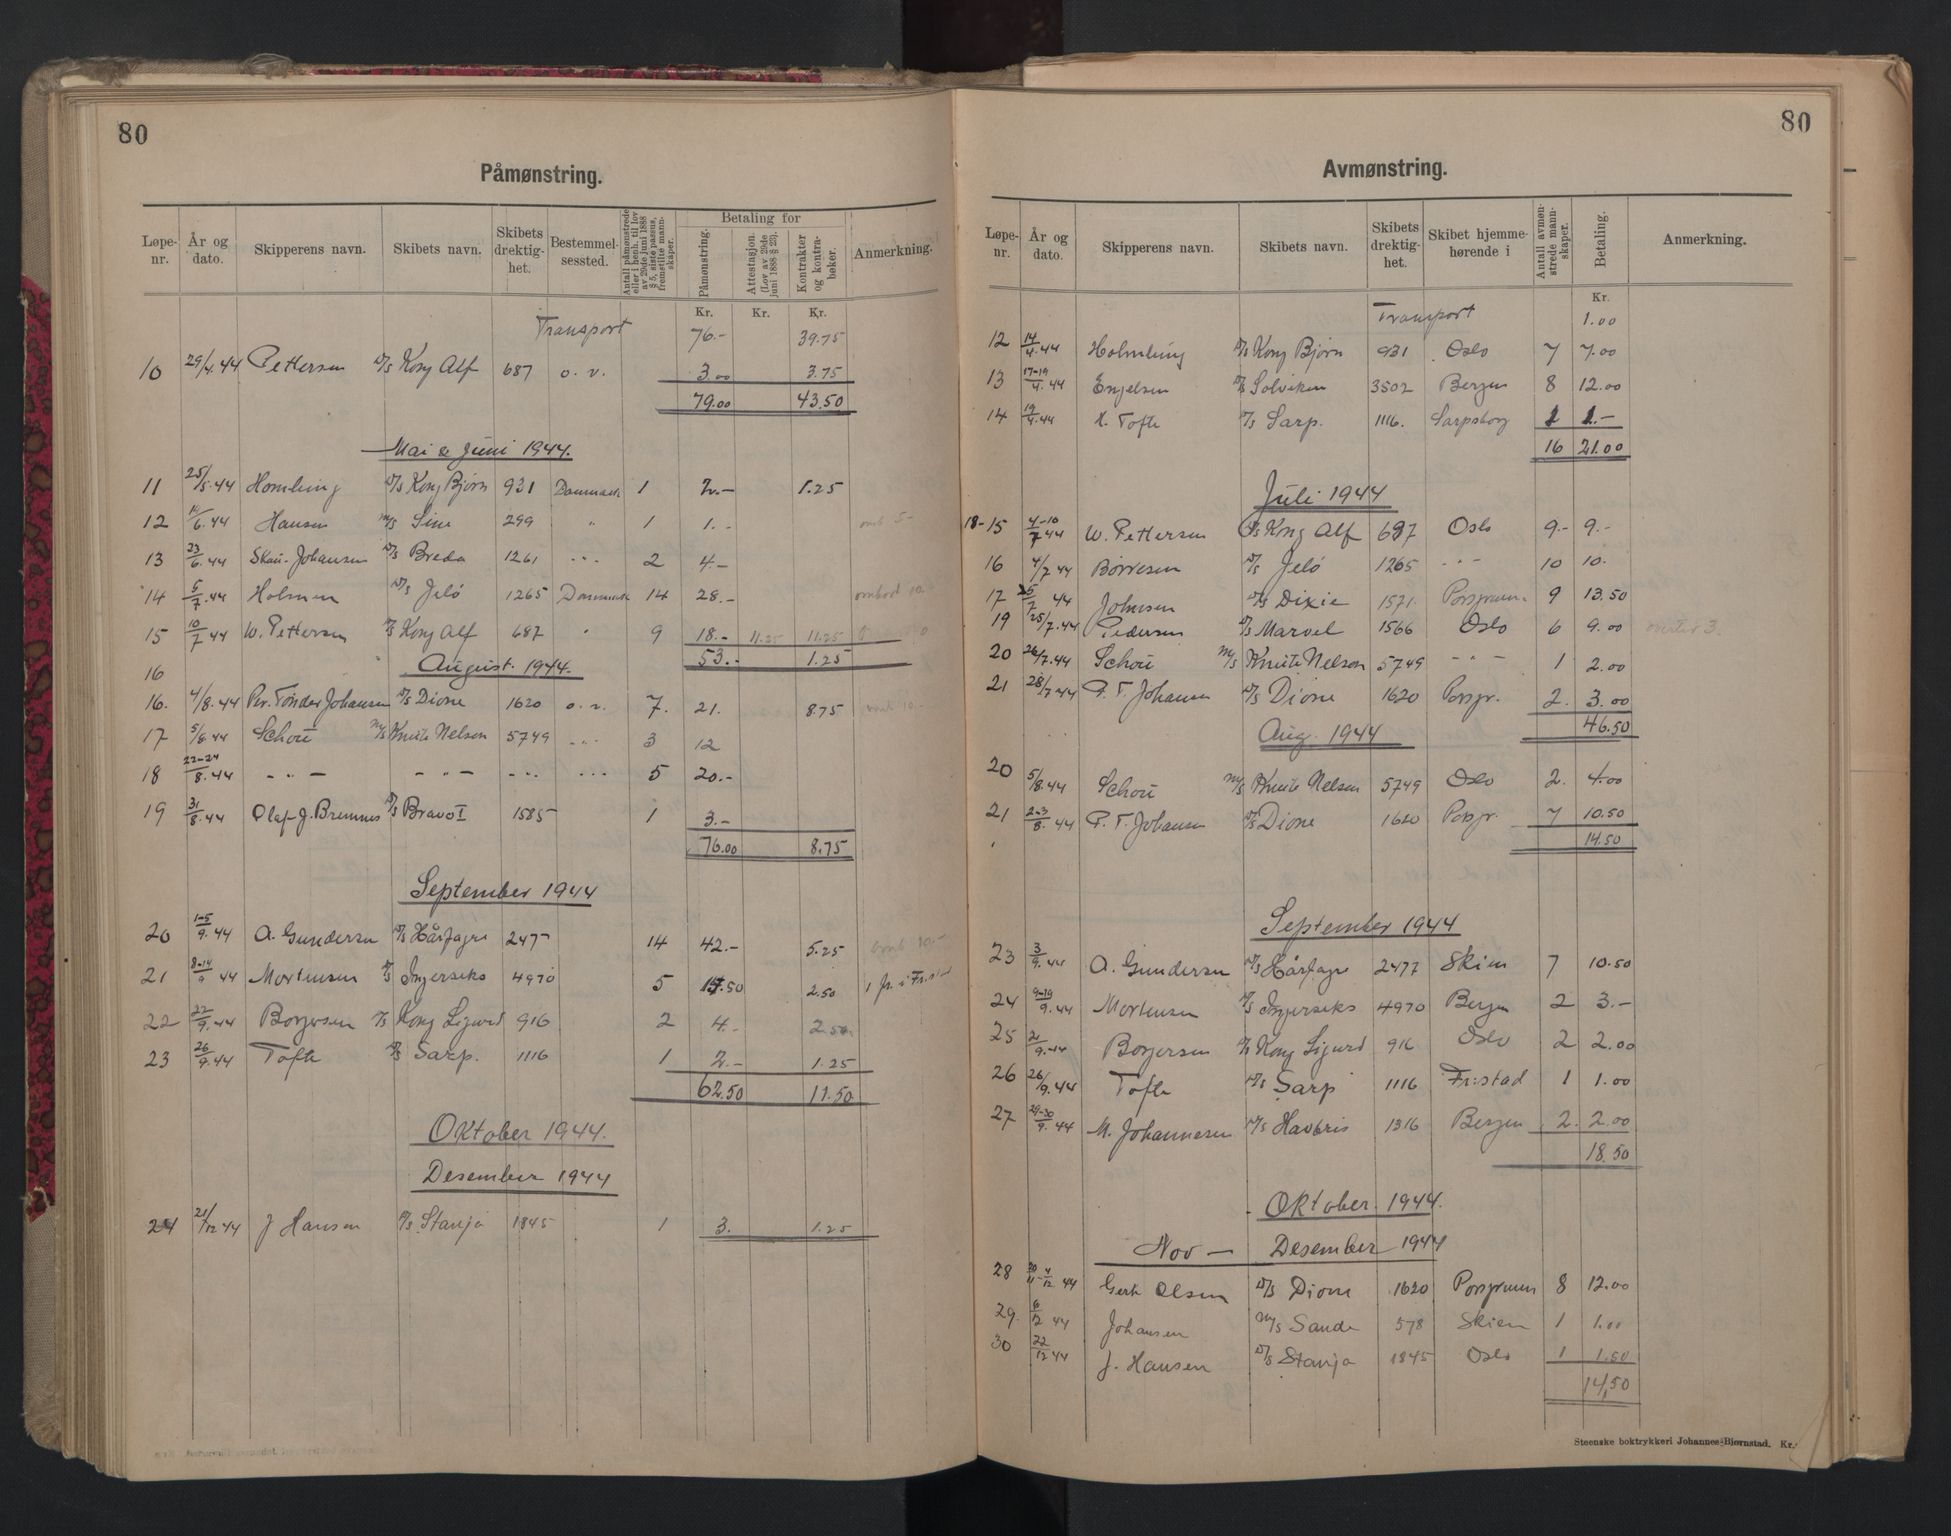 80
Påmønstring.
Løpe-nr. År og dato. Skipperens navn. Skibets navn. Skibets drektig-het. Bestemmel-sessted. Antall påmønstrede eller i henh. til lov av 29de juni 1888 § 5, siste passus, fremstilte mann-skaper. Betaling for Påmønstring. Attestasjon. (Lov av 29de juni 1888 § 23). Kontrakter og kontra-bøker. Anmerkning.
Kr. Kr. Kr.
Transport 76.- 39.75
10 29/4.44 Pettersen D/S Kong Alf 687 o. v. 3.00 3.75
79.00 43.50
Mai & Juni 1944.
11 25/5.44 Homling D/S Kong Bjørn 931 Danmark 1 2.- 1.25
12 /6.44 Hansen M/S Sine 299 " 1 1.- omb 5-
13 23/6.44 Skau-Johansen D/S Breda 1261 " 2 4.-
14 5/7.44 Holmen D/S Jelö 1265 Danmark 14 28.- ombord 10.-
15 10/7 44 W. Pettersen D/S Kong Alf 687 " 9 18.- 11.25 11.25
53.- 1.25
16 August. 1944.
16. 4/8.44 Per. Tønder Johansen D/S Dione 1620 o. v. 7. 21. 8.75 omb 10.-
17 5/8.44 Schou M/S Knute Nelson 5749 " 3 12
18 22-24/8.44 - " - - " - - " - " 5 20.-
19 31/8.44 Olaf J. Bremnes D/S Bravo I 1585 1 3.-
76.00 8.75
September 1944
20 1-5/9.44 A. Gundersen D/S Hårfagre 2477 14 42.- 5.25 omb 10.-
21 8-14/9 44 Mortensen D/S Ingerseks 4970 5 17.50 2.50 1 fr. i Fr.stad
22 22/9.44 Borgersen D/S Kong Sigurd 916 2 4.- 2.50
23 26/9.44 Tofte D/S Sarp. 1116 1 2.- 1.25
62.50 11.50
Oktober 1944.
Desember 1944
24 21/12 44 J Hansen D/S Stanja 1845 1 3. 1.25
80
Avmønstring.
Løpe-nr. År og dato. Skipperens navn. Skibets navn. Skibets drektig-het. Skibet hjemme-hørende i Antall avmøn-strede mann-skaper. Betaling. Anmerkning.
Kr.
Transport 1.00
12 14/4.44 Holmling D/S Kong Bjørn 931 Oslo 7 7.00
13 17-19/4.44 Engelsen D/S Solviken 3502 Bergen 8 12.00
14 19/4.44 Tofte D/S Sarp. 1116. Sarpsborg 1 1.-
16 21.00
Juli 1944
18-15 4-10/7 44 W. Pettersen D/S Kong Alf 687 Oslo 9- 9.-
16 4/7 44 Børresen D/S Jelö 1265 - " - 10 10.
17 25/7 44 Johnsen D/S Dixie 1571. Porsgrunn 9 13.50
19 25/7.44 Pedersen D/S Marvel 1566 Oslo 6 9.00 overtid 3.
20 26/7.44 Schou M/S Knute Nelson 5749 - " - 1 2.00
21 28/7 44 P. T. Johansen D/S Dione 1620 Porsgr. 2. 3.00
46.50
Aug. 1944
20 5/8.44 Schou M/S Knute Nelson 5749 Oslo 2. 4.00
21 2-3/8. 44 P. T. Johansen D/S Dione 1620 Porsgr. 7 10.50
14.50
September 1944
23 3/9.44 A. Gundersen D/S Hårfagre 2477 Skien 7 10.50
24 9-19/9.44 Mortensen D/S Ingerseks 4970 Bergen 2 3.-
25 21/9.44 Borgersen D/S Kong Sigurd 916 Oslo 2 2.00
26 26/9.44 Tofte D/S Sarp 1116 Fr:stad 1 1.00
27 29-30/9. 44 M. Johannesen D/S Havbris 1316 Bergen 2. 2.00
18.50
Oktober. 1944.
Nov - Desember 1944
28 20/11-4/12 44 Gerh Olsen D/S Dione 1620 Porsgrunn 8 12.00
29. 6/12 44 Johansen M/S Sande 578 Skien 1 1.00
30 22/12 44 J. Hansen D/S Stanja 1845 Oslo 1 1.50
14,50
Steenske boktrykkeri Johannes Bjørnstad. Kr.